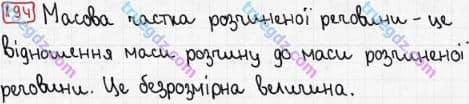 194 Масова частка розчиненої речовини - це
відношення маси розчину до маси розчиненої
речовини. Це безрозмірна величина.